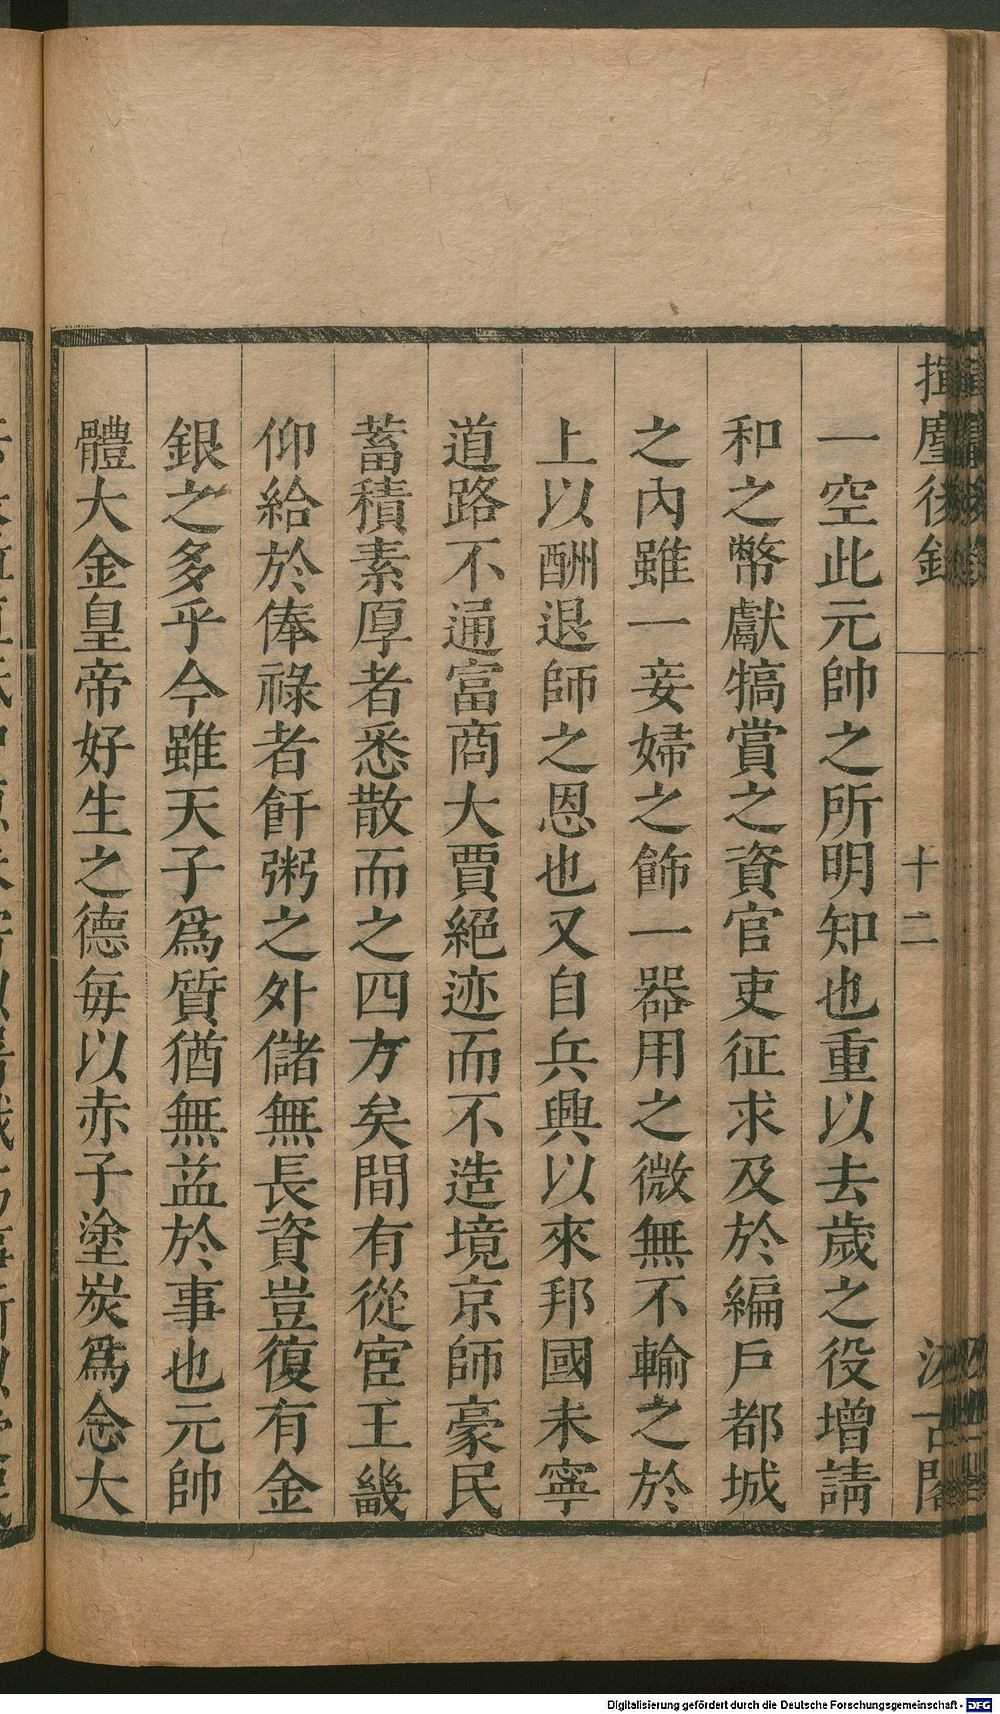 揮麈後錄
十二
汲古閣
一空此元帥之所明知也重以去歲之役增請
和之幣獻犒賞之資官吏征求及於編戶都城
之內雖一妾婦之飾一器用之微無不輸之於
上以酬退師之恩也又自兵興以來邦國未寧
道路不通富商大賈絕迹而不造境京師豪民
蓄積素厚者悉散而之四方矣間有從宦王畿
仰給於俸祿者飦粥之外儲無長資豈復有金
銀之多乎今雖天子爲質猶無益於事也元帥
體大金皇帝好生之德毎以赤子塗炭爲念大
Digitalisierung gefördert durch die Deutsche Forschungsgemeinschaft - DFG